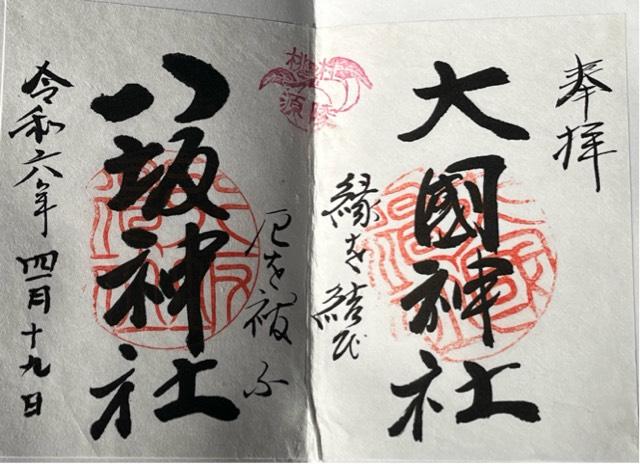 奉拝
大國神社
縁を結び
桃村
須陵
厄を祓ふ
八坂神社
令和六年四月十九日